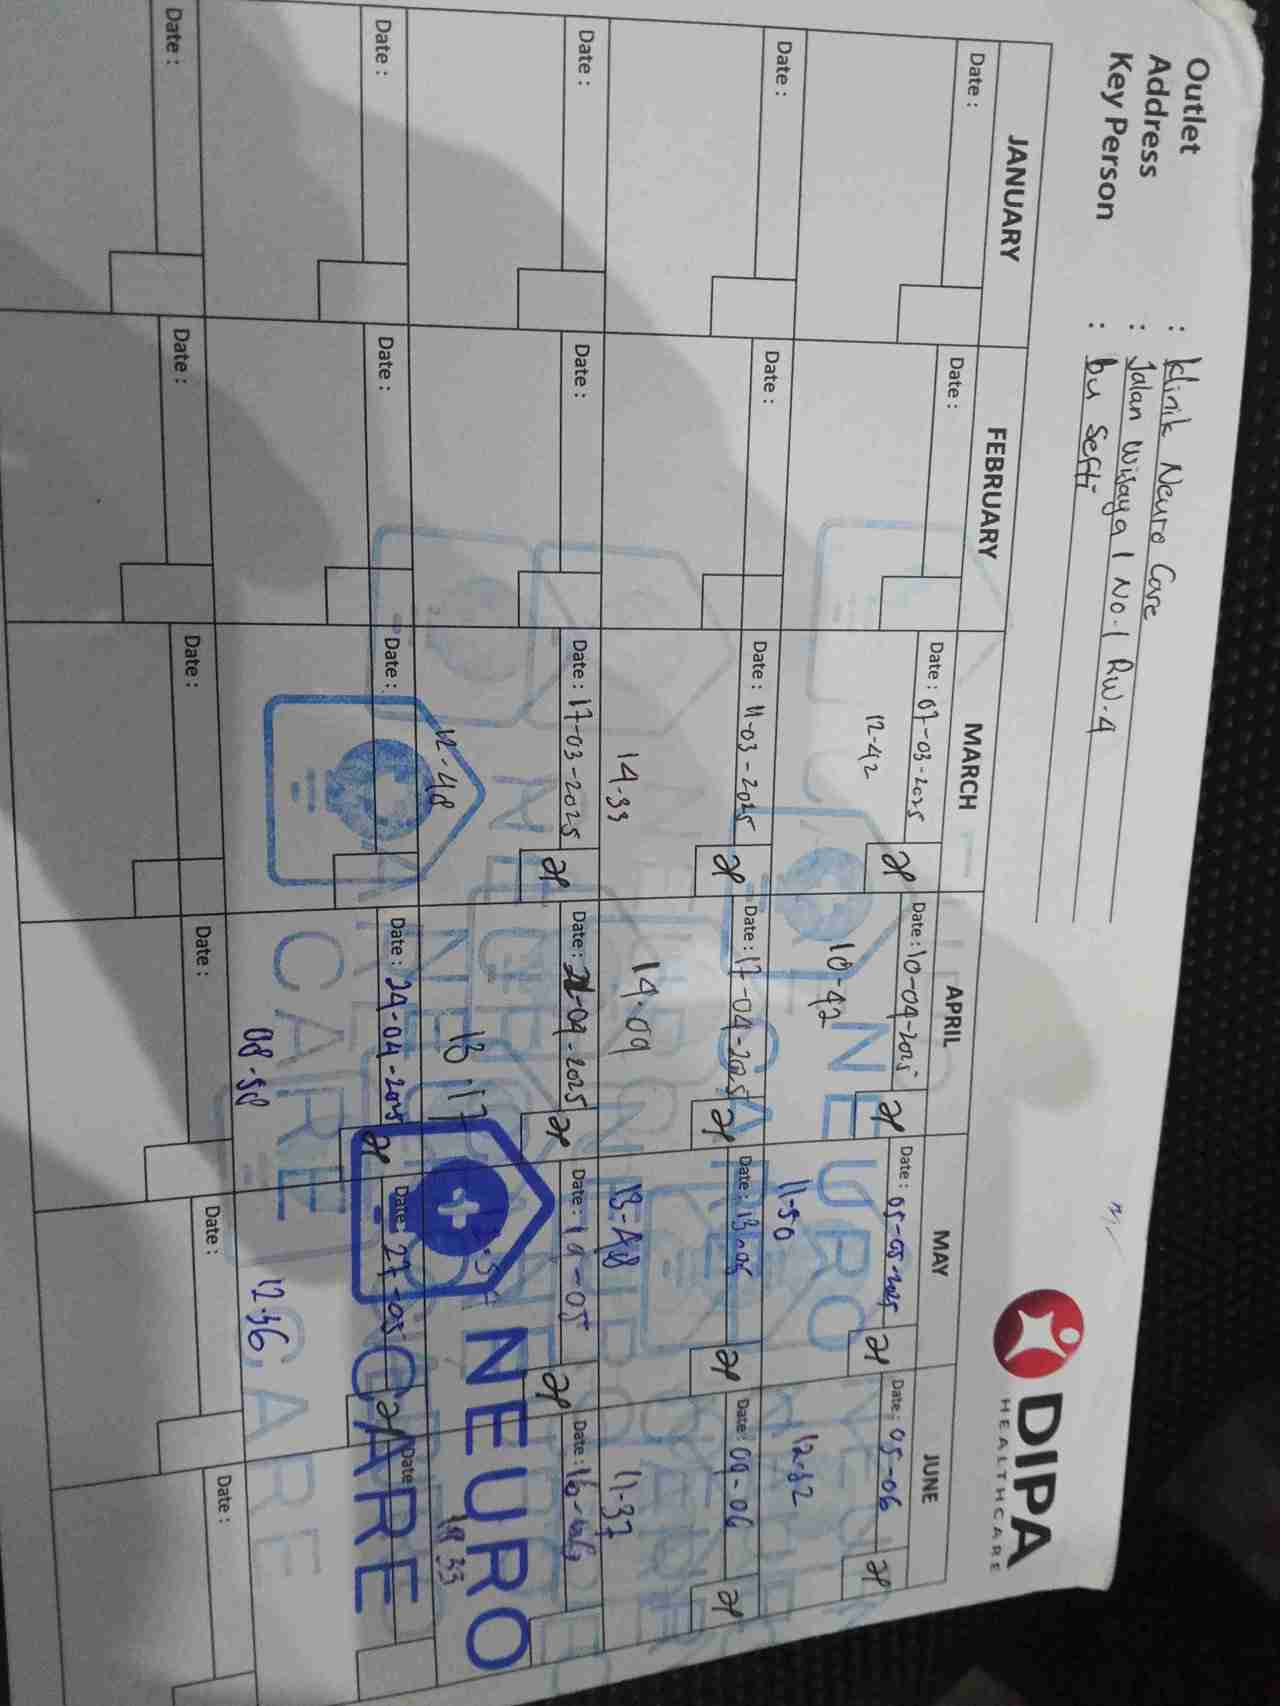 Outlet : Klinik Neuro Care
Address : Jalan Wijaya 1 No.1 RW.4
Key Person : bu Sefti
DIPA
HEALTHCARE
JANUARY FEBRUARY MARCH APRIL MAY JUNE
Date : Date : Date : 07-03-2025 Date : 10-04-2025 Date : 05-05-2025 Date : 05-06
12-42 10-42 11-50 12-32
Date : Date : Date : 11-03-2025 Date : 17-04-2025 Date : 13-05 Date : 09-06
14-33 14.09 13-48 11-37
Date : Date : Date : 17-03-2025 Date : 21-04-2025 Date : 19-05 Date : 16-06
12-48 13.17 33
Date : Date : Date : Date : 24-04-2025 Date : 27-05 Date
08-58 12.36
Date : Date : Date : Date : Date : Date :
NEURO
CARE